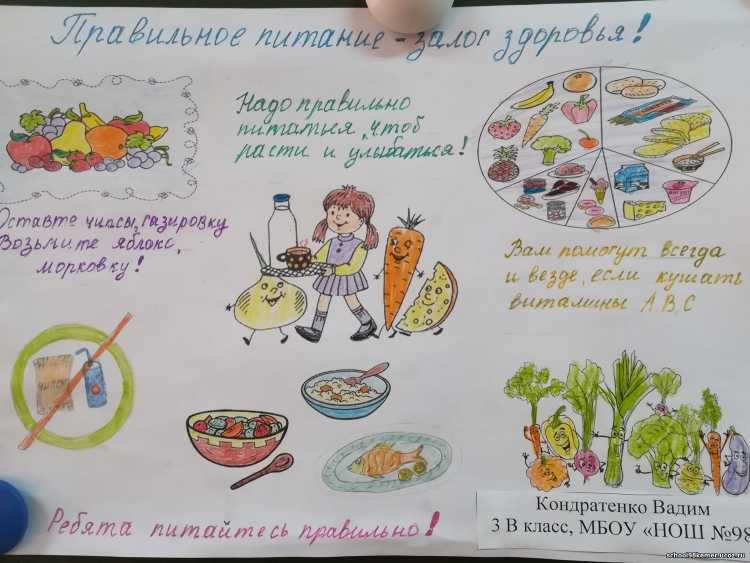 Правильное питание - залог здоровья!
Надо правильно
питаться, чтоб
расти и улыбаться!
Оставте чипсы, газировку
Возьмите яблоко,
морковку!
Вам помогут всегда
и везде, если кушать
витамины А, В, С
Ребята питайтесь правильно!
Кондратенко Вадим
3 В класс, МБОУ «НОШ №98
school98kemer.ucoz.ru